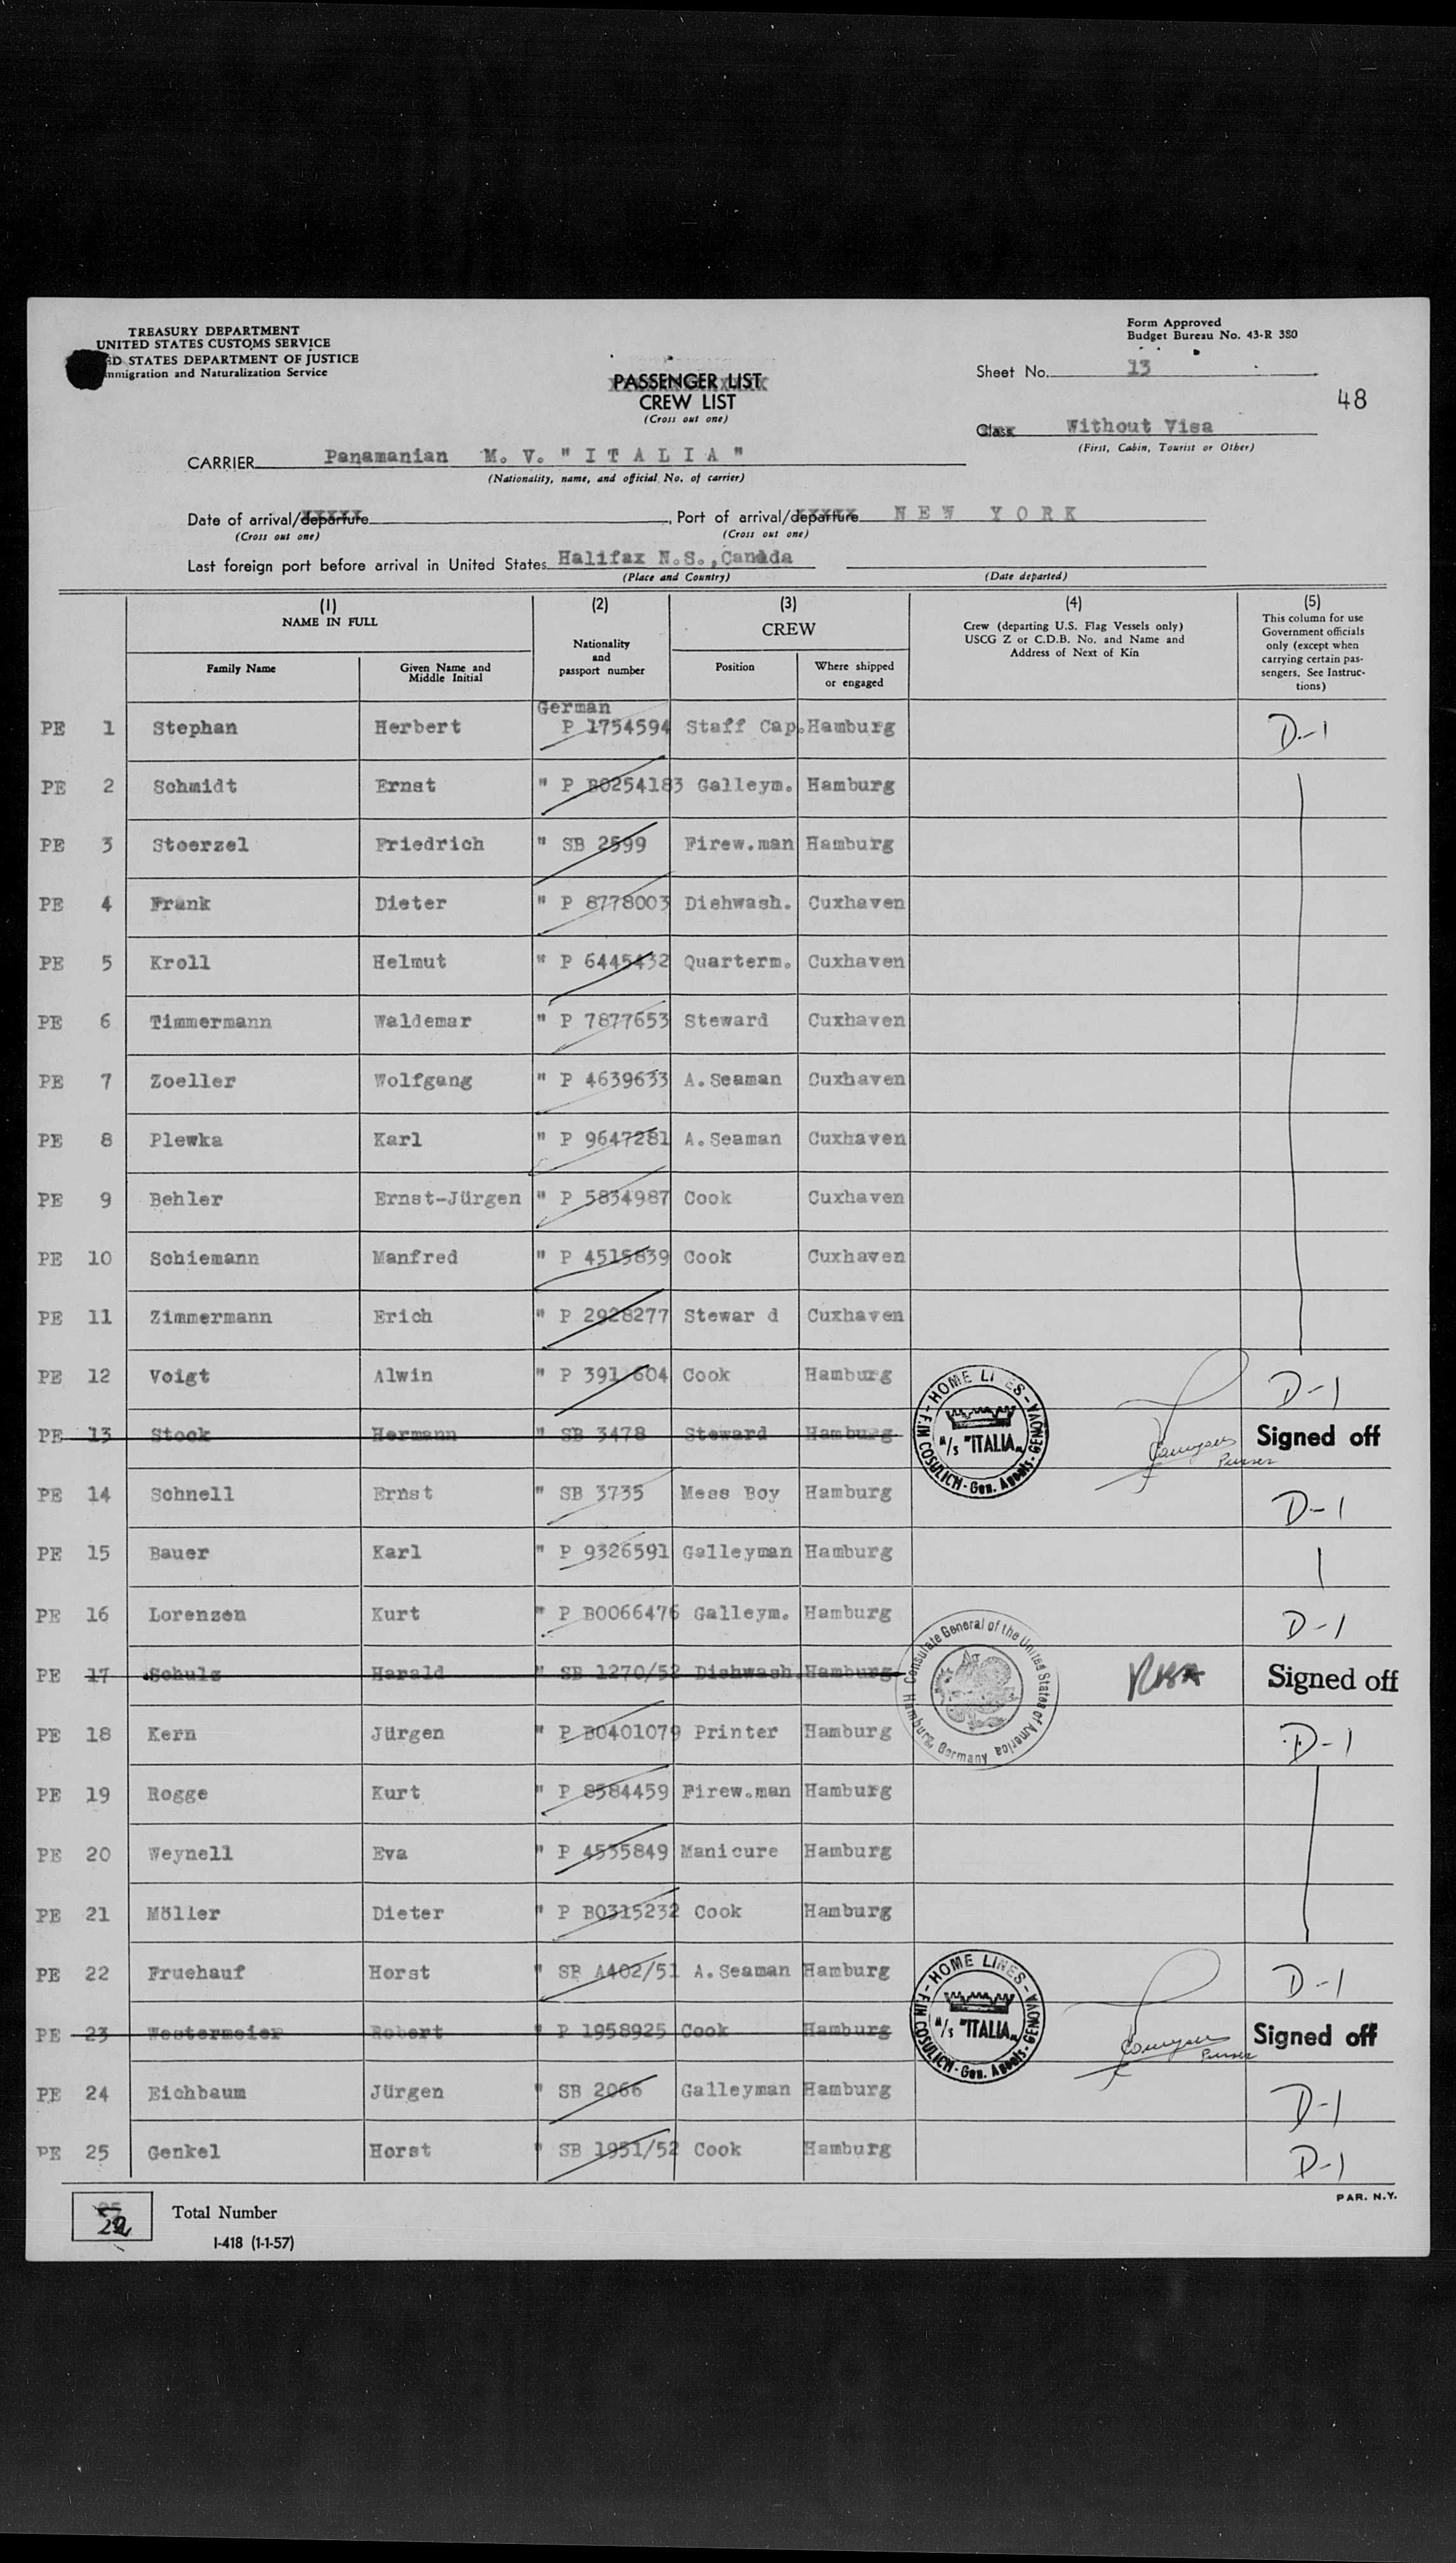 TREASURY DEPARTMENT
UNITED STATES CUSTOMS SERVICE
ED STATES DEPARTMENT OF JUSTICE
mmigration and Naturalization Service
Form Approved
Budget Bureau No. 43-R 380
PASSENGER LIST
CREW LIST
(Cross out one)
Sheet No. 13
48
Class Without Visa
(First, Cabin, Tourist or Other)
CARRIER Panamanian M. V. " I T A L I A "
(Nationality, name, and official No. of carrier)
Date of arrival/departure , Port of arrival/departure N E W Y O R K
(Cross out one) (Cross out one)
Last foreign port before arrival in United States Halifax N.S.,Canada
(Place and Country) (Date departed)
(1) (2) (3) (4) (5)
NAME IN FULL
Family Name
Given Name and Middle Initial
Nationality and passport number
CREW
Position
Where shipped or engaged
Crew (departing U.S. Flag Vessels only)
USCG Z or C.D.B. No. and Name and
Address of Next of Kin
This column for use
Government officials
only (except when
carrying certain pas-
sengers. See Instruc-
tions)
German
PE 1 Stephan Herbert P 1754594 Staff Cap. Hamburg D-1
PE 2 Schmidt Ernst " P B0254183 Galleym. Hamburg
PE 3 Stoerzel Friedrich " SB 2599 Firew.man Hamburg
PE 4 Frank Dieter " P 8778003 Dishwash. Cuxhaven
PE 5 Kroll Helmut " P 6445432 Quarterm. Cuxhaven
PE 6 Timmermann Waldemar " P 7877653 Steward Cuxhaven
PE 7 Zoeller Wolfgang " P 4639633 A.Seaman Cuxhaven
PE 8 Plewka Karl " P 9647281 A.Seaman Cuxhaven
PE 9 Behler Ernst-Jürgen " P 5834987 Cook Cuxhaven
PE 10 Schiemann Manfred " P 4515839 Cook Cuxhaven
PE 11 Zimmermann Erich " P 2928277 Stewar d Cuxhaven
PE 12 Voigt Alwin " P 391 604 Cook Hamburg D-1
PE 13 Stock Hermann " SB 3478 Steward Hamburg Purser Signed off
HOME LINES - GENOVA - F.lli COSULICH - Gen. Agents -
M/s "ITALIA"
PE 14 Schnell Ernst " SB 3735 Mess Boy Hamburg D-1
PE 15 Bauer Karl " P 9326591 Galleyman Hamburg
PE 16 Lorenzen Kurt " P B0066476 Galleym. Hamburg D-1
PE 17 Schulz Harald " SB 1270/52 Dishwash. Hamburg Signed off
Consulate General of the United States of America
Hamburg, Germany
PE 18 Kern Jürgen " P B0401079 Printer Hamburg D-1
PE 19 Rogge Kurt " P 8584459 Firew.man Hamburg
PE 20 Weynell Eva " P 4535849 Manicure Hamburg
PE 21 Möller Dieter " P B0315232 Cook Hamburg
PE 22 Fruehauf Horst " SB A402/51 A.Seaman Hamburg D-1
PE 23 Westermeier Robert " P 1958925 Cook Hamburg Purser Signed off
HOME LINES - GENOVA - F.lli COSULICH - Gen. Agents -
M/s "ITALIA"
PE 24 Eichbaum Jürgen " SB 2066 Galleyman Hamburg D-1
PE 25 Genkel Horst " SB 1951/52 Cook Hamburg D-1
22 Total Number
PAR. N.Y.
I-418 (1-1-57)